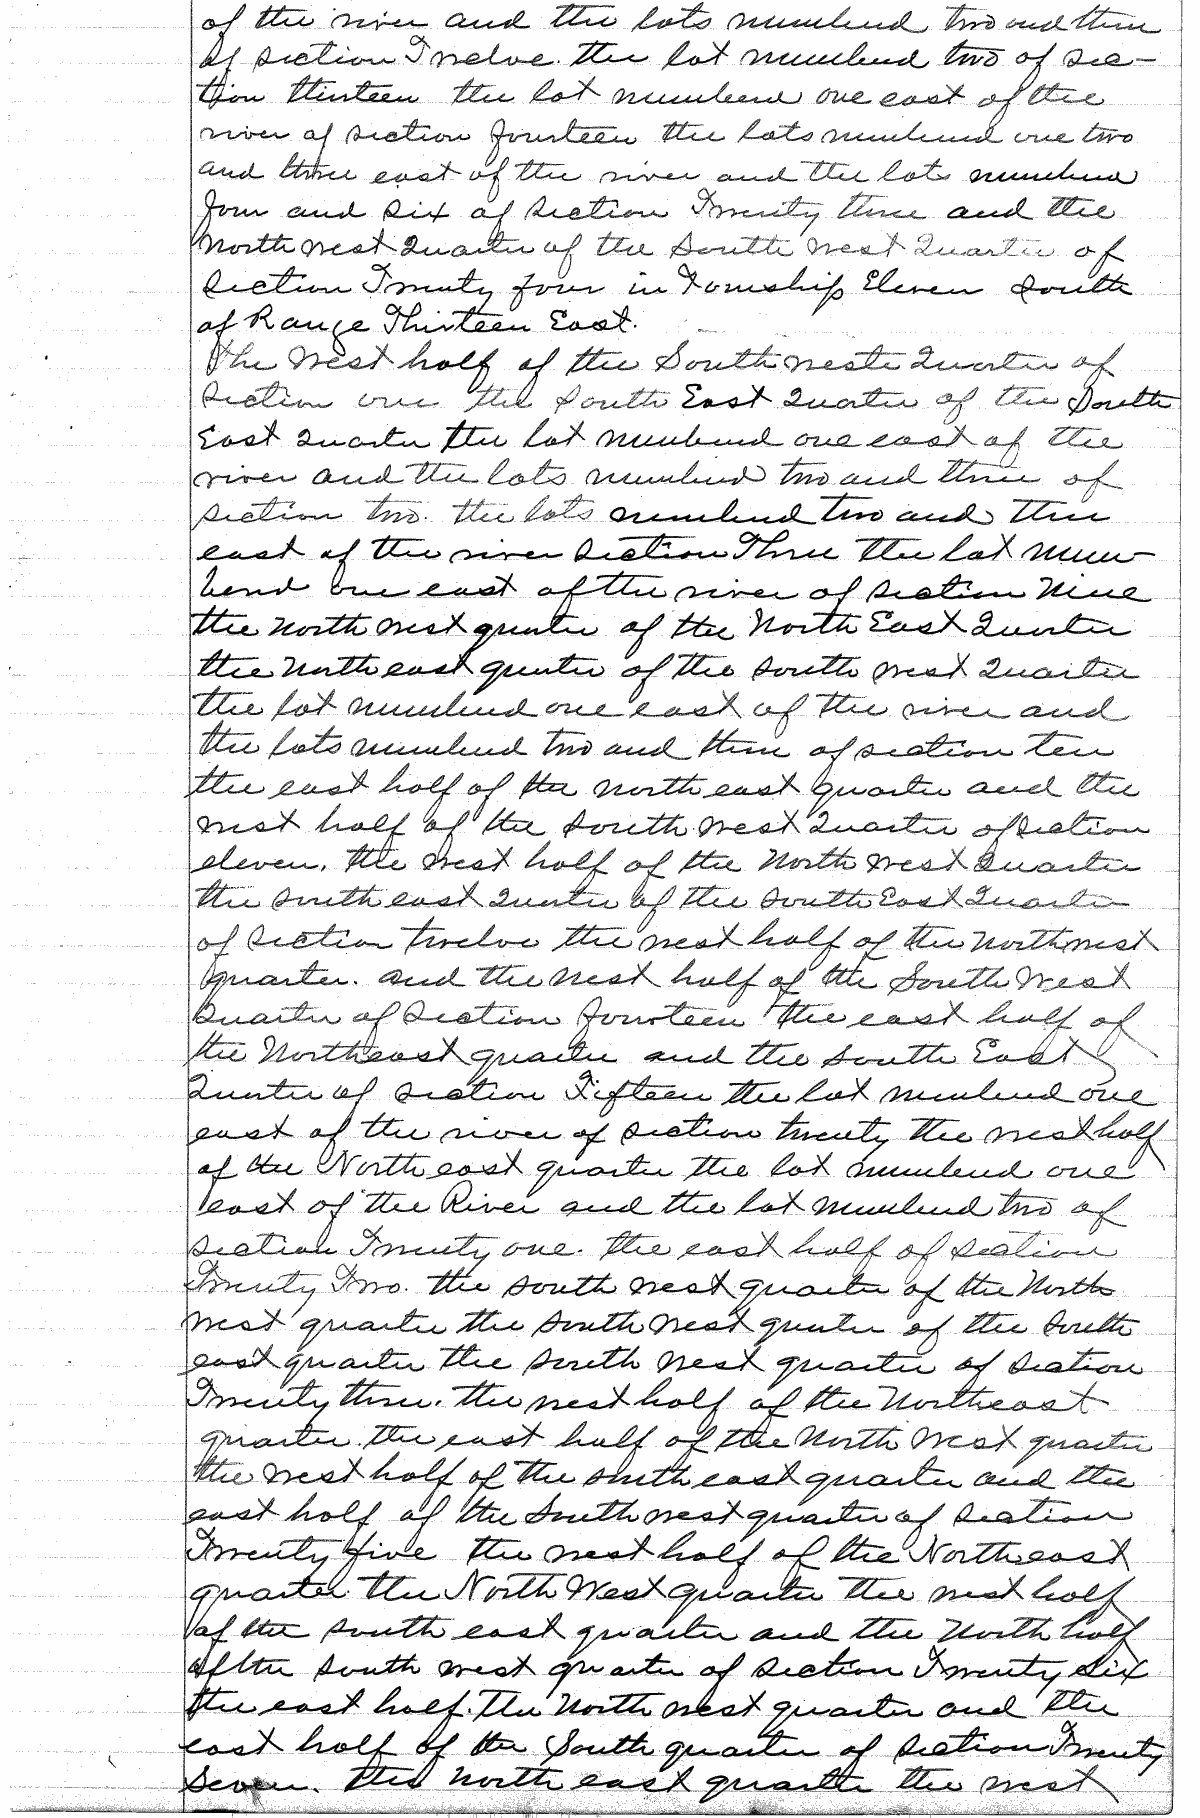 of the river and the lots numbered two and three
of section Twelve. the lot numbered two of sec-
tion thirteen the lot numbered one east of the
river of section fourteen the lots numbered one two
and three east of the river and the lots numbered
four and six of section Twenty three and the
North west Quarter of the South West Quarter of
section Twenty four in Township Eleven South
of Range Thirteen East.
The West half of the South weste Quarter of
Section one the South East Quarter of the South
East Quarter the lot numbered one east of the
river and the lots numbered two and three of
section two. the lots numbered two and three
east of the river section Three the lot num-
bered one east of the river of section Nine
the North west quarter of the North East Quarter
the North east quarter of the south west Quarter
the lot numbered one east of the river and
the lots numbered two and three of section ten
the east half of the north east quarter and the
west half of the south west Quarter of section
eleven. the west half of the North west Quarter
the south east Quarter of the south East Quarter
of section twelve the west half of the North west
quarter. and the west half of the South West
Quarter of Section fourteen the east half of
the Northeast quarter and the south East
Quarter of section Fifteen the lot numbered one
east of the river of section twenty the west half
of the North east quarter the lot numbered one
east of the River and the lot numbered two of
section Twenty one. the east half of section
Twenty Two. the south west quarter of the North
West quarter the south west quarter of the south
east quarter the south west quarter of section
Twenty three. the west half of the Northeast
quarter. the east half of the North West quarter
the west half of the south east quarter and the
east half of the South west quarter of section
Twenty five the west half of the North east
quarter the North West quarter the west half
of the south east quarter and the North half
of the south west quarter of section Twenty six
the east half. the North west quarter and the
east half of the South quarter of section Twenty
Seven. the North east quarter the west